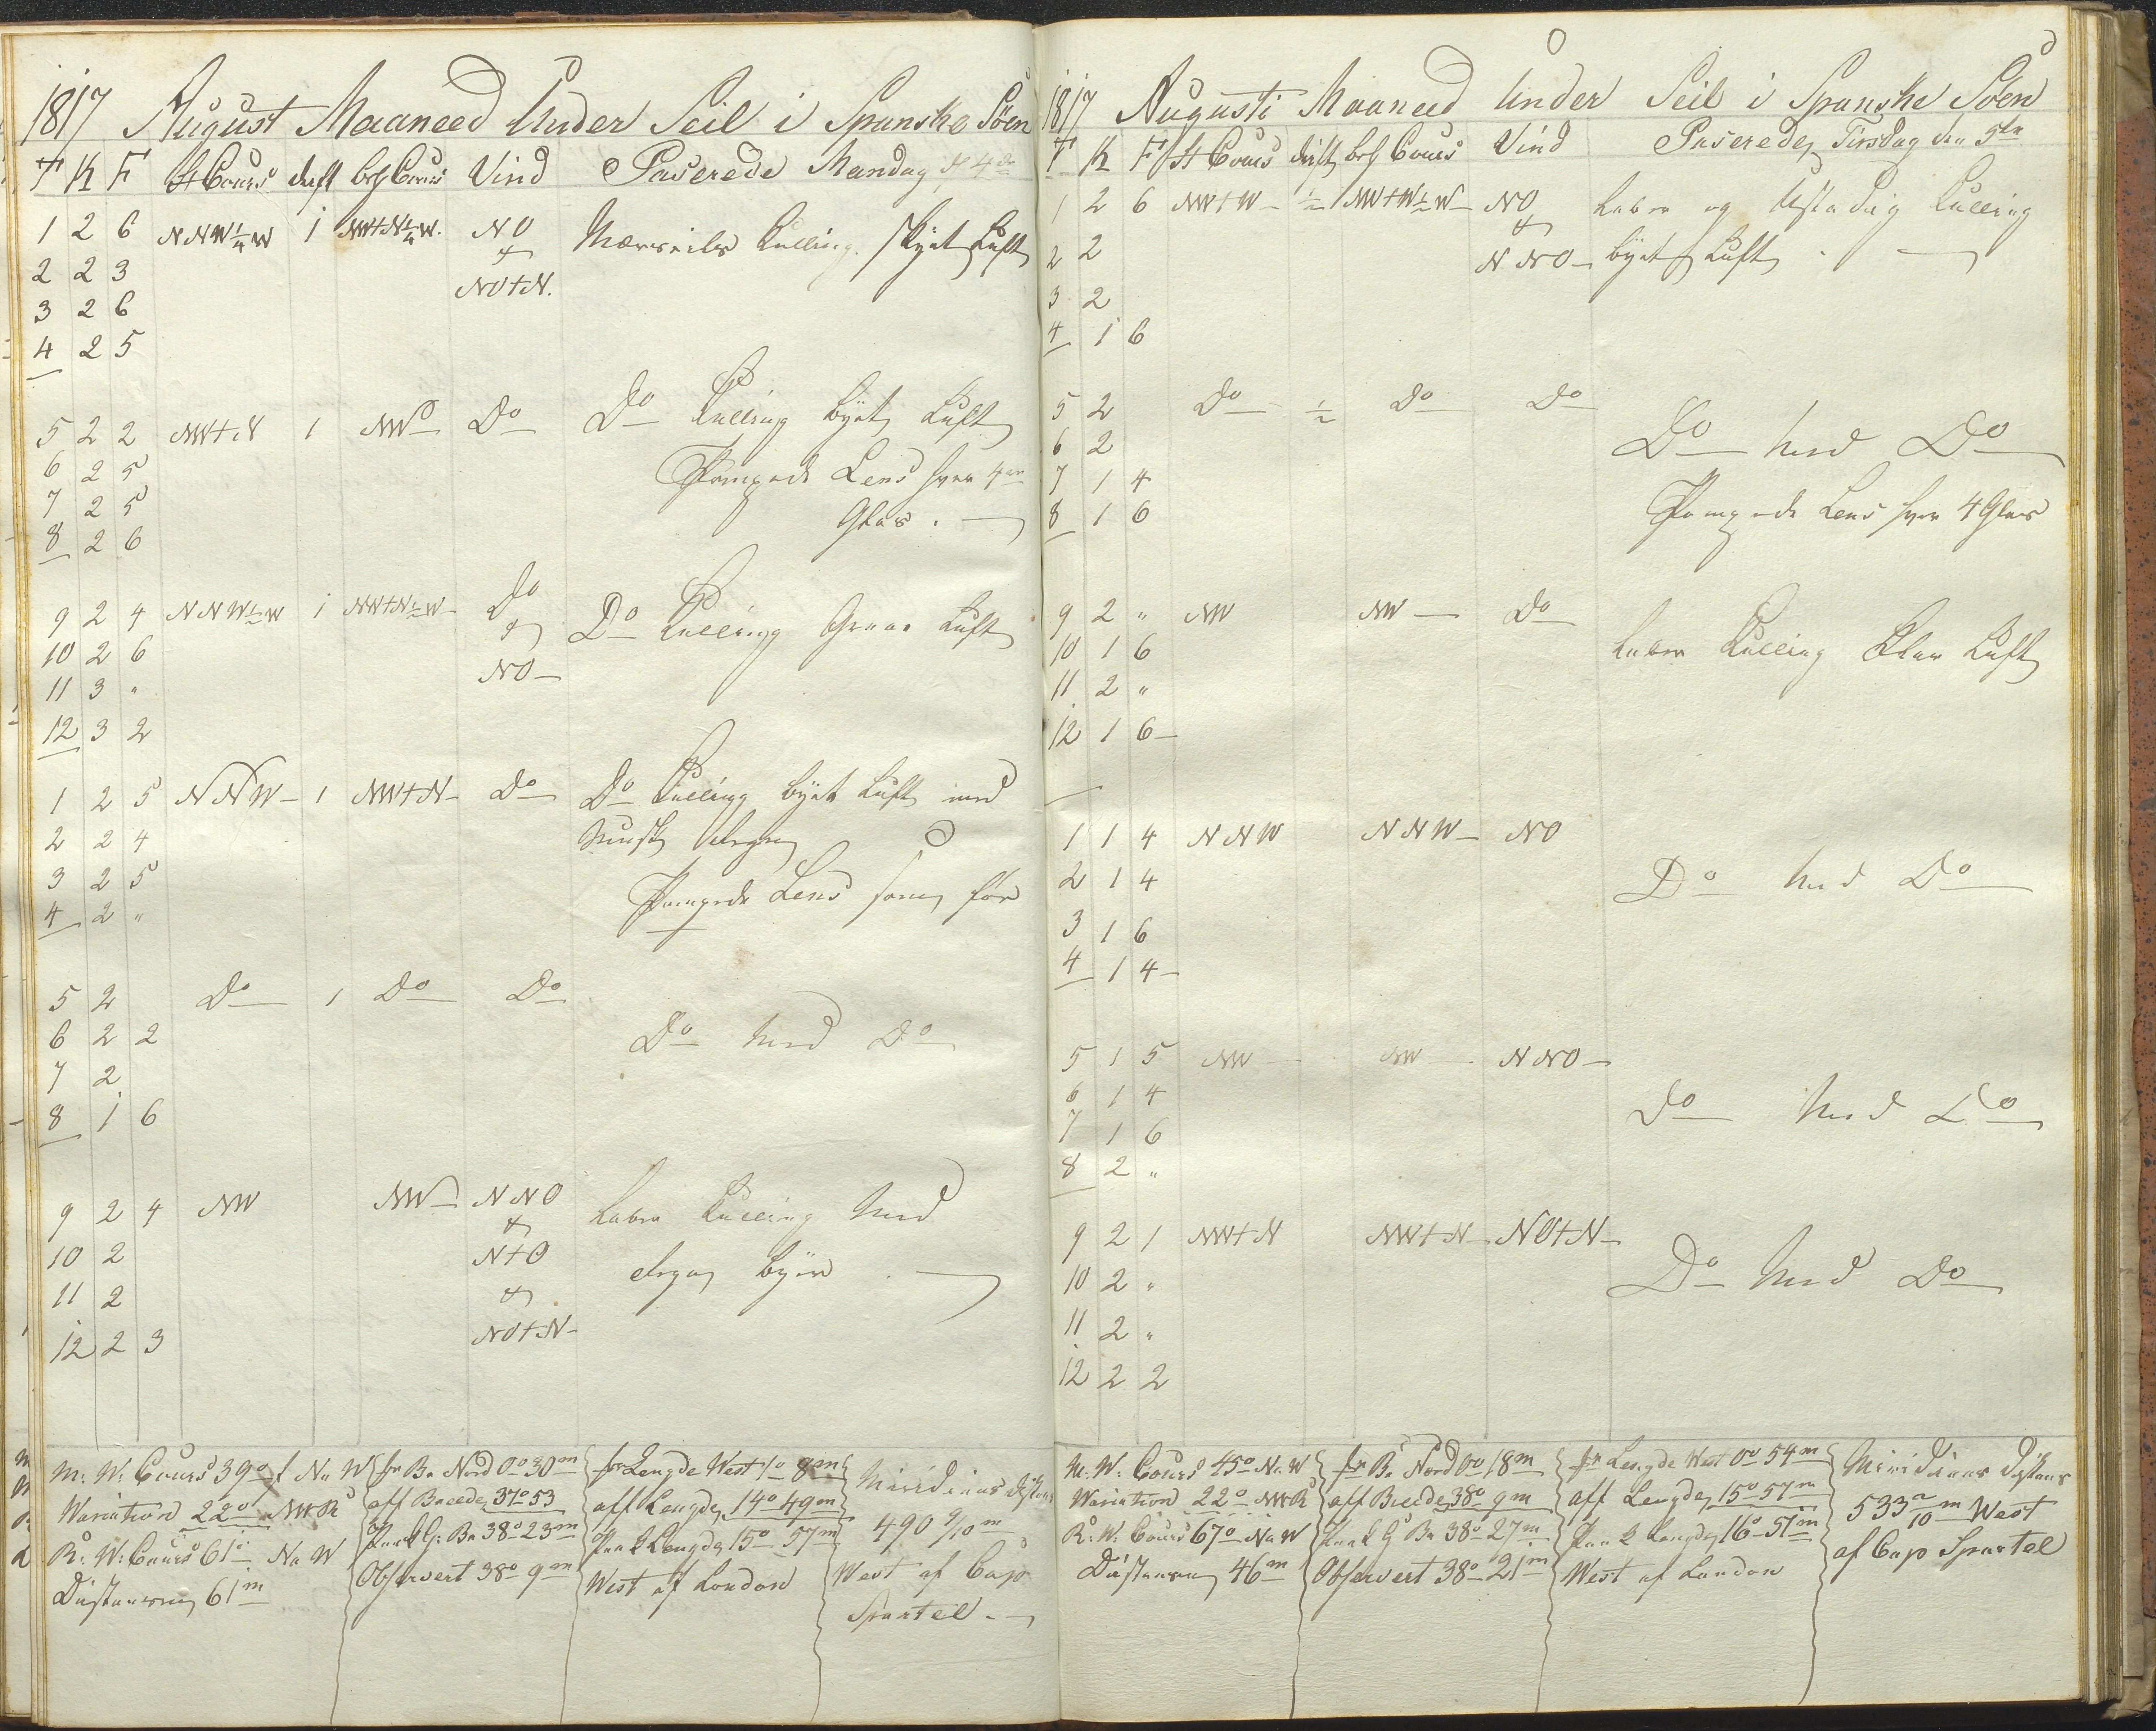 1817 August Maaneed Under Seil i Spanske Söen
T K F St Cours drift beh Cours Vind Paserede Mandag d 4de
1 2 6 NNW¼W 1 NW+N¼W. NO Mersseils Kulling. Skyet Luft
2 2 3 &
3 2 6 NO+N.
4 2 5
5 2 2 NW+N 1 NW Do Do Kulling byet Luft
6 2 5 Pompede Lens hver 4re
7 2 5 Glas.
8 2 6
9 2 4 NNW½W 1 NW+N½W Do Do Kulling Graae Luft
10 2 6 &
11 3 " NO
12 3 2
1 2 5 NNW 1 NW+N Do Do Kulling byet Luft med
2 2 4
3 2 5 Pompede Lens som för
4 2 "
5 2 Do 1 Do Do
6 2 2 Do med Do
7 2
8 1 6
9 2 4 NW NW NNO Laber Kulling med
10 2 & N+O byer
11 2 &
12 2 3 NO+N
M: W: Cours 39o NaW
Wariation 22o NWR
R: W: Cours 61o NaW
Distansen 61m
fr Be Nord 0o 30m
aff Breede 37o 53
Paak G: Be 38o 23m
Observert 38o 9m
fr Lengde West 1o 8m
aff Lengde 14o 49m
Paak Lengde 15o 57m
West af London
Meridians Distans
490 9/10m
West af Cap
Spartel.
1817 Augusti Maaneed Under Seil i Spanske Söen
T K F St Cours drift beh Cours Vind Paserede Tirsdag den 5te
1 2 6 NW+W ½ NW+W½W NO Laber og Ustadig Kulling
2 2 & NNO byet Luft
3 2
4 1 6
5 2 Do ½ Do Do
6 2 Do med Do
7 1 4
8 1 6 Pompede Lens hver 4 Glas
9 2 " NW NW Do
10 1 6 Laber Kulling Klar Luft
11 2 "
12 1 6
1 1 4 NNW NNW NO
2 1 4 Do med Do
3 1 6
4 1 4
5 1 5 NW NW NNO
6 1 4 Do med Do
7 1 6
8 2 "
9 2 1 NW+N NW+N NO+N
10 2 " Do med Do
11 2 "
12 2 2
M: W: Cours 45o NaW
Wariation 22o NWR
R: W: Cours 67o NaW
Distansen 46m
fr Be Nord 0o 18m
aff Breede 38o 9m
Paak G Be 38o 27m
Observert 38o 21m
fr Lengde West 0o 54m
aff Lengde 15o 57m
Paak Lengde 16o 51m
West af London
Meridians Distans
533 2/10m West
af Cap Spartel